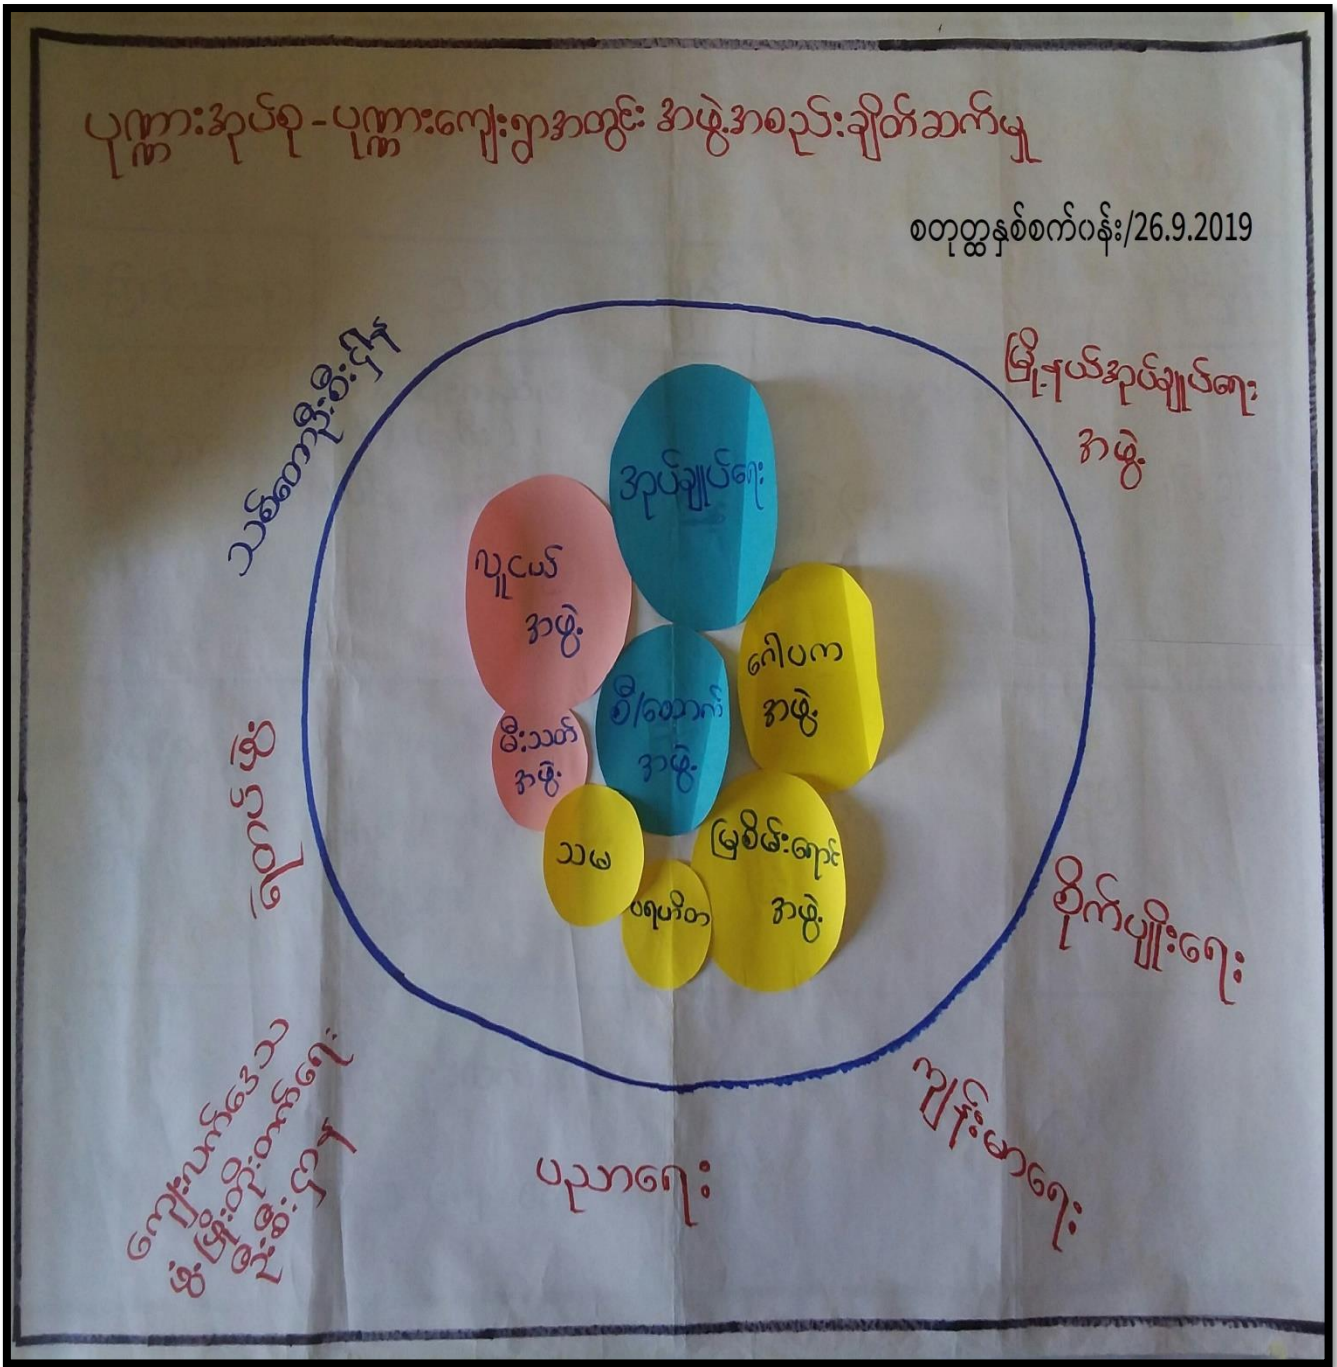 ပုဏ္ဏားအုပ်စု-ပုဏ္ဏားကျေးရွာအတွင်း အဖွဲ့အစည်းချိတ်ဆက်မှု
စတုတ္ထနှစ်စက်ဝန်း/26.9.2019
သစ်တောဦးစီးဌာန
မြို့နယ်အုပ်ချုပ်ရေး
အဖွဲ့
အုပ်ချုပ်ရေး
လူငယ်
အဖွဲ့
ဂေါပက
အဖွဲ့
စီ/ထောက်
အဖွဲ့
မီးသတ်
အဖွဲ့
သမ
ပရဟိတ
မြစိမ်းရောင်
အဖွဲ့
စိုက်ပျိုးရေး
ကျန်းမာရေး
ပညာရေး
ကျေးလက်ဒေသ
ဖွံ့ဖြိုးတိုးတက်ရေး
ဦးစီးဌာန